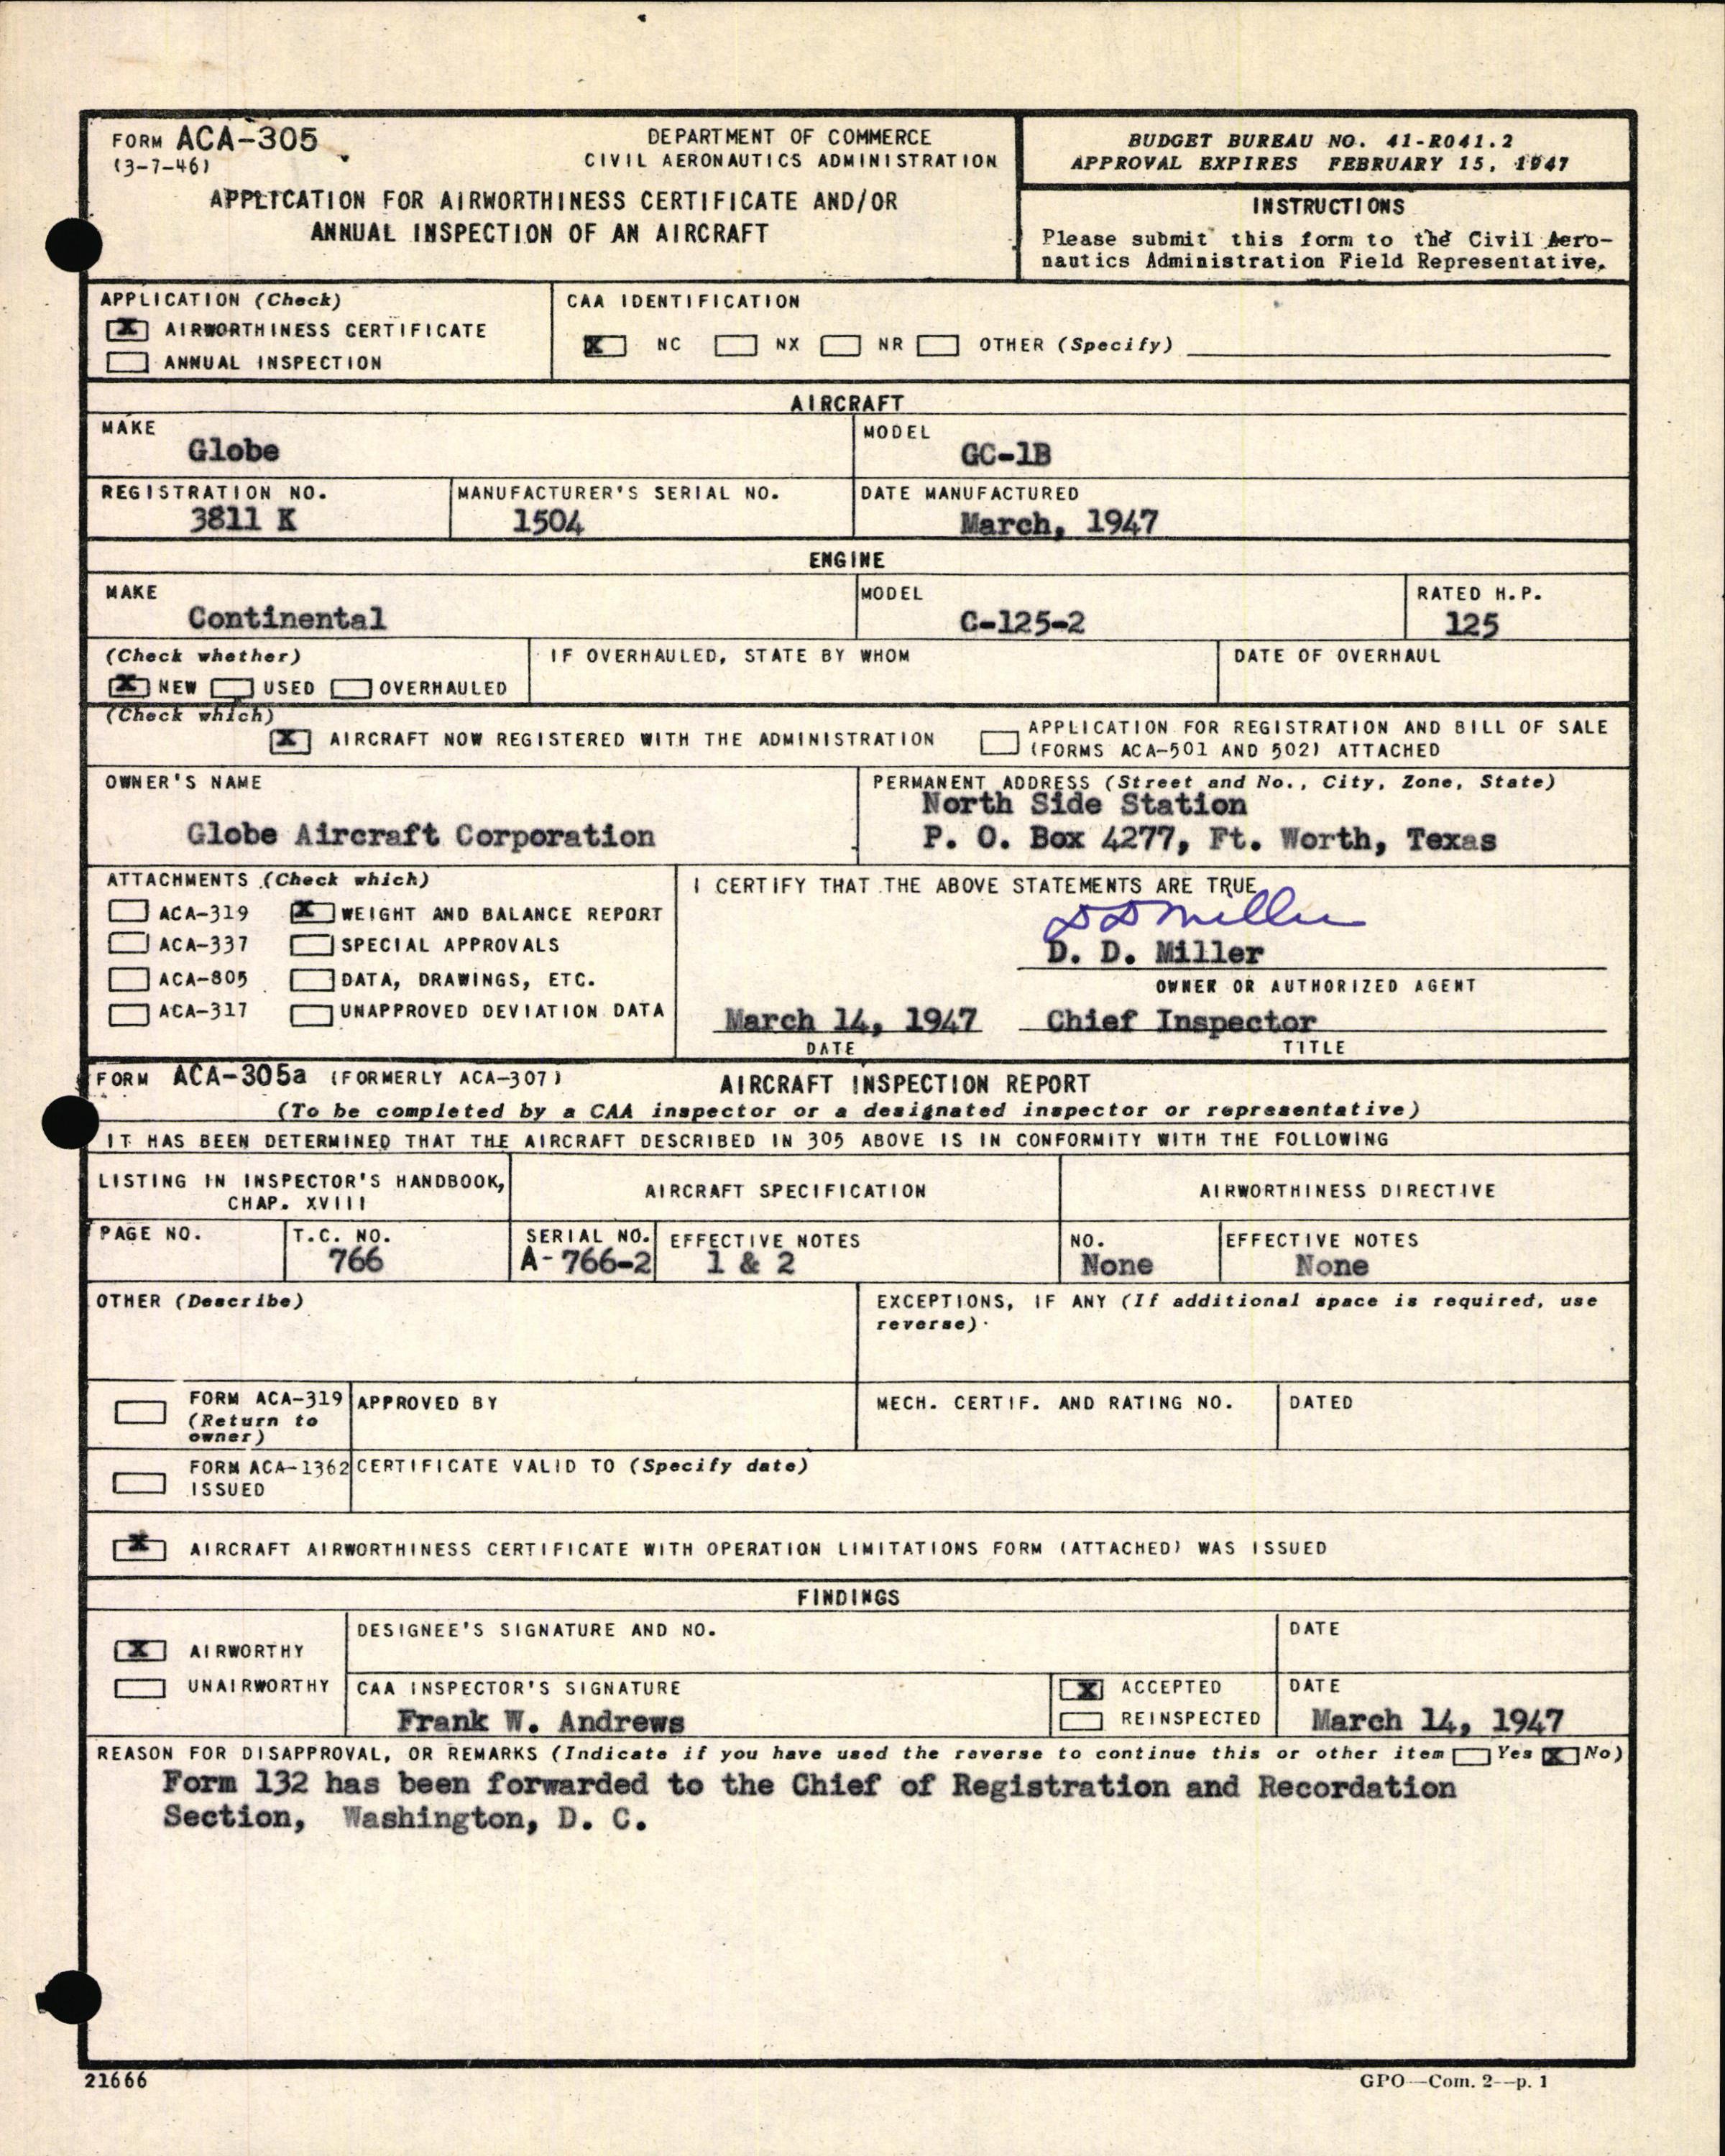 FORM ACA-305
(3-7-46)
DEPARTMENT OF COMMERCE
CIVIL AERONAUTICS ADMINISTRATION
APPLICATION FOR AIRWORTHINESS CERTIFICATE AND/OR
ANNUAL INSPECTION OF AN AIRCRAFT
BUDGET BUREAU NO. 41-R041.2
APPROVAL EXPIRES FEBRUARY 15, 1947
INSTRUCTIONS
Please submit this form to the Civil Aero-
nautics Administration Field Representative.
APPLICATION (Check)
X AIRWORTHINESS CERTIFICATE
ANNUAL INSPECTION
CAA IDENTIFICATION
X NC NX NR OTHER (Specify)
AIRCRAFT
MAKE
Globe
MODEL
GC-1B
REGISTRATION NO.
3811 K
MANUFACTURER'S SERIAL NO.
1504
DATE MANUFACTURED
March, 1947
ENGINE
MAKE
Continental
MODEL
C-125-2
RATED H.P.
125
(Check whether)
X NEW USED OVERHAULED
IF OVERHAULED, STATE BY WHOM
DATE OF OVERHAUL
(Check which)
X AIRCRAFT NOW REGISTERED WITH THE ADMINISTRATION
APPLICATION FOR REGISTRATION AND BILL OF SALE
(FORMS ACA-501 AND 502) ATTACHED
OWNER'S NAME
Globe Aircraft Corporation
PERMANENT ADDRESS (Street and No., City, Zone, State)
North Side Station
P. O. Box 4277, Ft. Worth, Texas
ATTACHMENTS (Check which)
ACA-319 X WEIGHT AND BALANCE REPORT
ACA-337 SPECIAL APPROVALS
ACA-805 DATA, DRAWINGS, ETC.
ACA-317 UNAPPROVED DEVIATION DATA
I CERTIFY THAT THE ABOVE STATEMENTS ARE TRUE
D D Miller
D. D. Miller
OWNER OR AUTHORIZED AGENT
March 14, 1947 Chief Inspector
DATE TITLE
FORM ACA-305a (FORMERLY ACA-307) AIRCRAFT INSPECTION REPORT
(To be completed by a CAA inspector or a designated inspector or representative)
IT HAS BEEN DETERMINED THAT THE AIRCRAFT DESCRIBED IN 305 ABOVE IS IN CONFORMITY WITH THE FOLLOWING
LISTING IN INSPECTOR'S HANDBOOK,
CHAP. XVIII
AIRCRAFT SPECIFICATION
AIRWORTHINESS DIRECTIVE
PAGE NO.
T.C. NO.
766
SERIAL NO.
A-766-2
EFFECTIVE NOTES
1 & 2
NO.
None
EFFECTIVE NOTES
None
OTHER (Describe)
EXCEPTIONS, IF ANY (If additional space is required, use
reverse)
FORM ACA-319
(Return to
owner)
APPROVED BY
MECH. CERTIF. AND RATING NO.
DATED
FORM ACA-1362
ISSUED
CERTIFICATE VALID TO (Specify date)
X AIRCRAFT AIRWORTHINESS CERTIFICATE WITH OPERATION LIMITATIONS FORM (ATTACHED) WAS ISSUED
FINDINGS
X AIRWORTHY
UNAIRWORTHY
DESIGNEE'S SIGNATURE AND NO.
DATE
CAA INSPECTOR'S SIGNATURE
Frank W. Andrews
X ACCEPTED
REINSPECTED
DATE
March 14, 1947
REASON FOR DISAPPROVAL, OR REMARKS (Indicate if you have used the reverse to continue this or other item Yes X No)
Form 132 has been forwarded to the Chief of Registration and Recordation
Section, Washington, D. C.
21666
GPO—Com. 2--p. 1